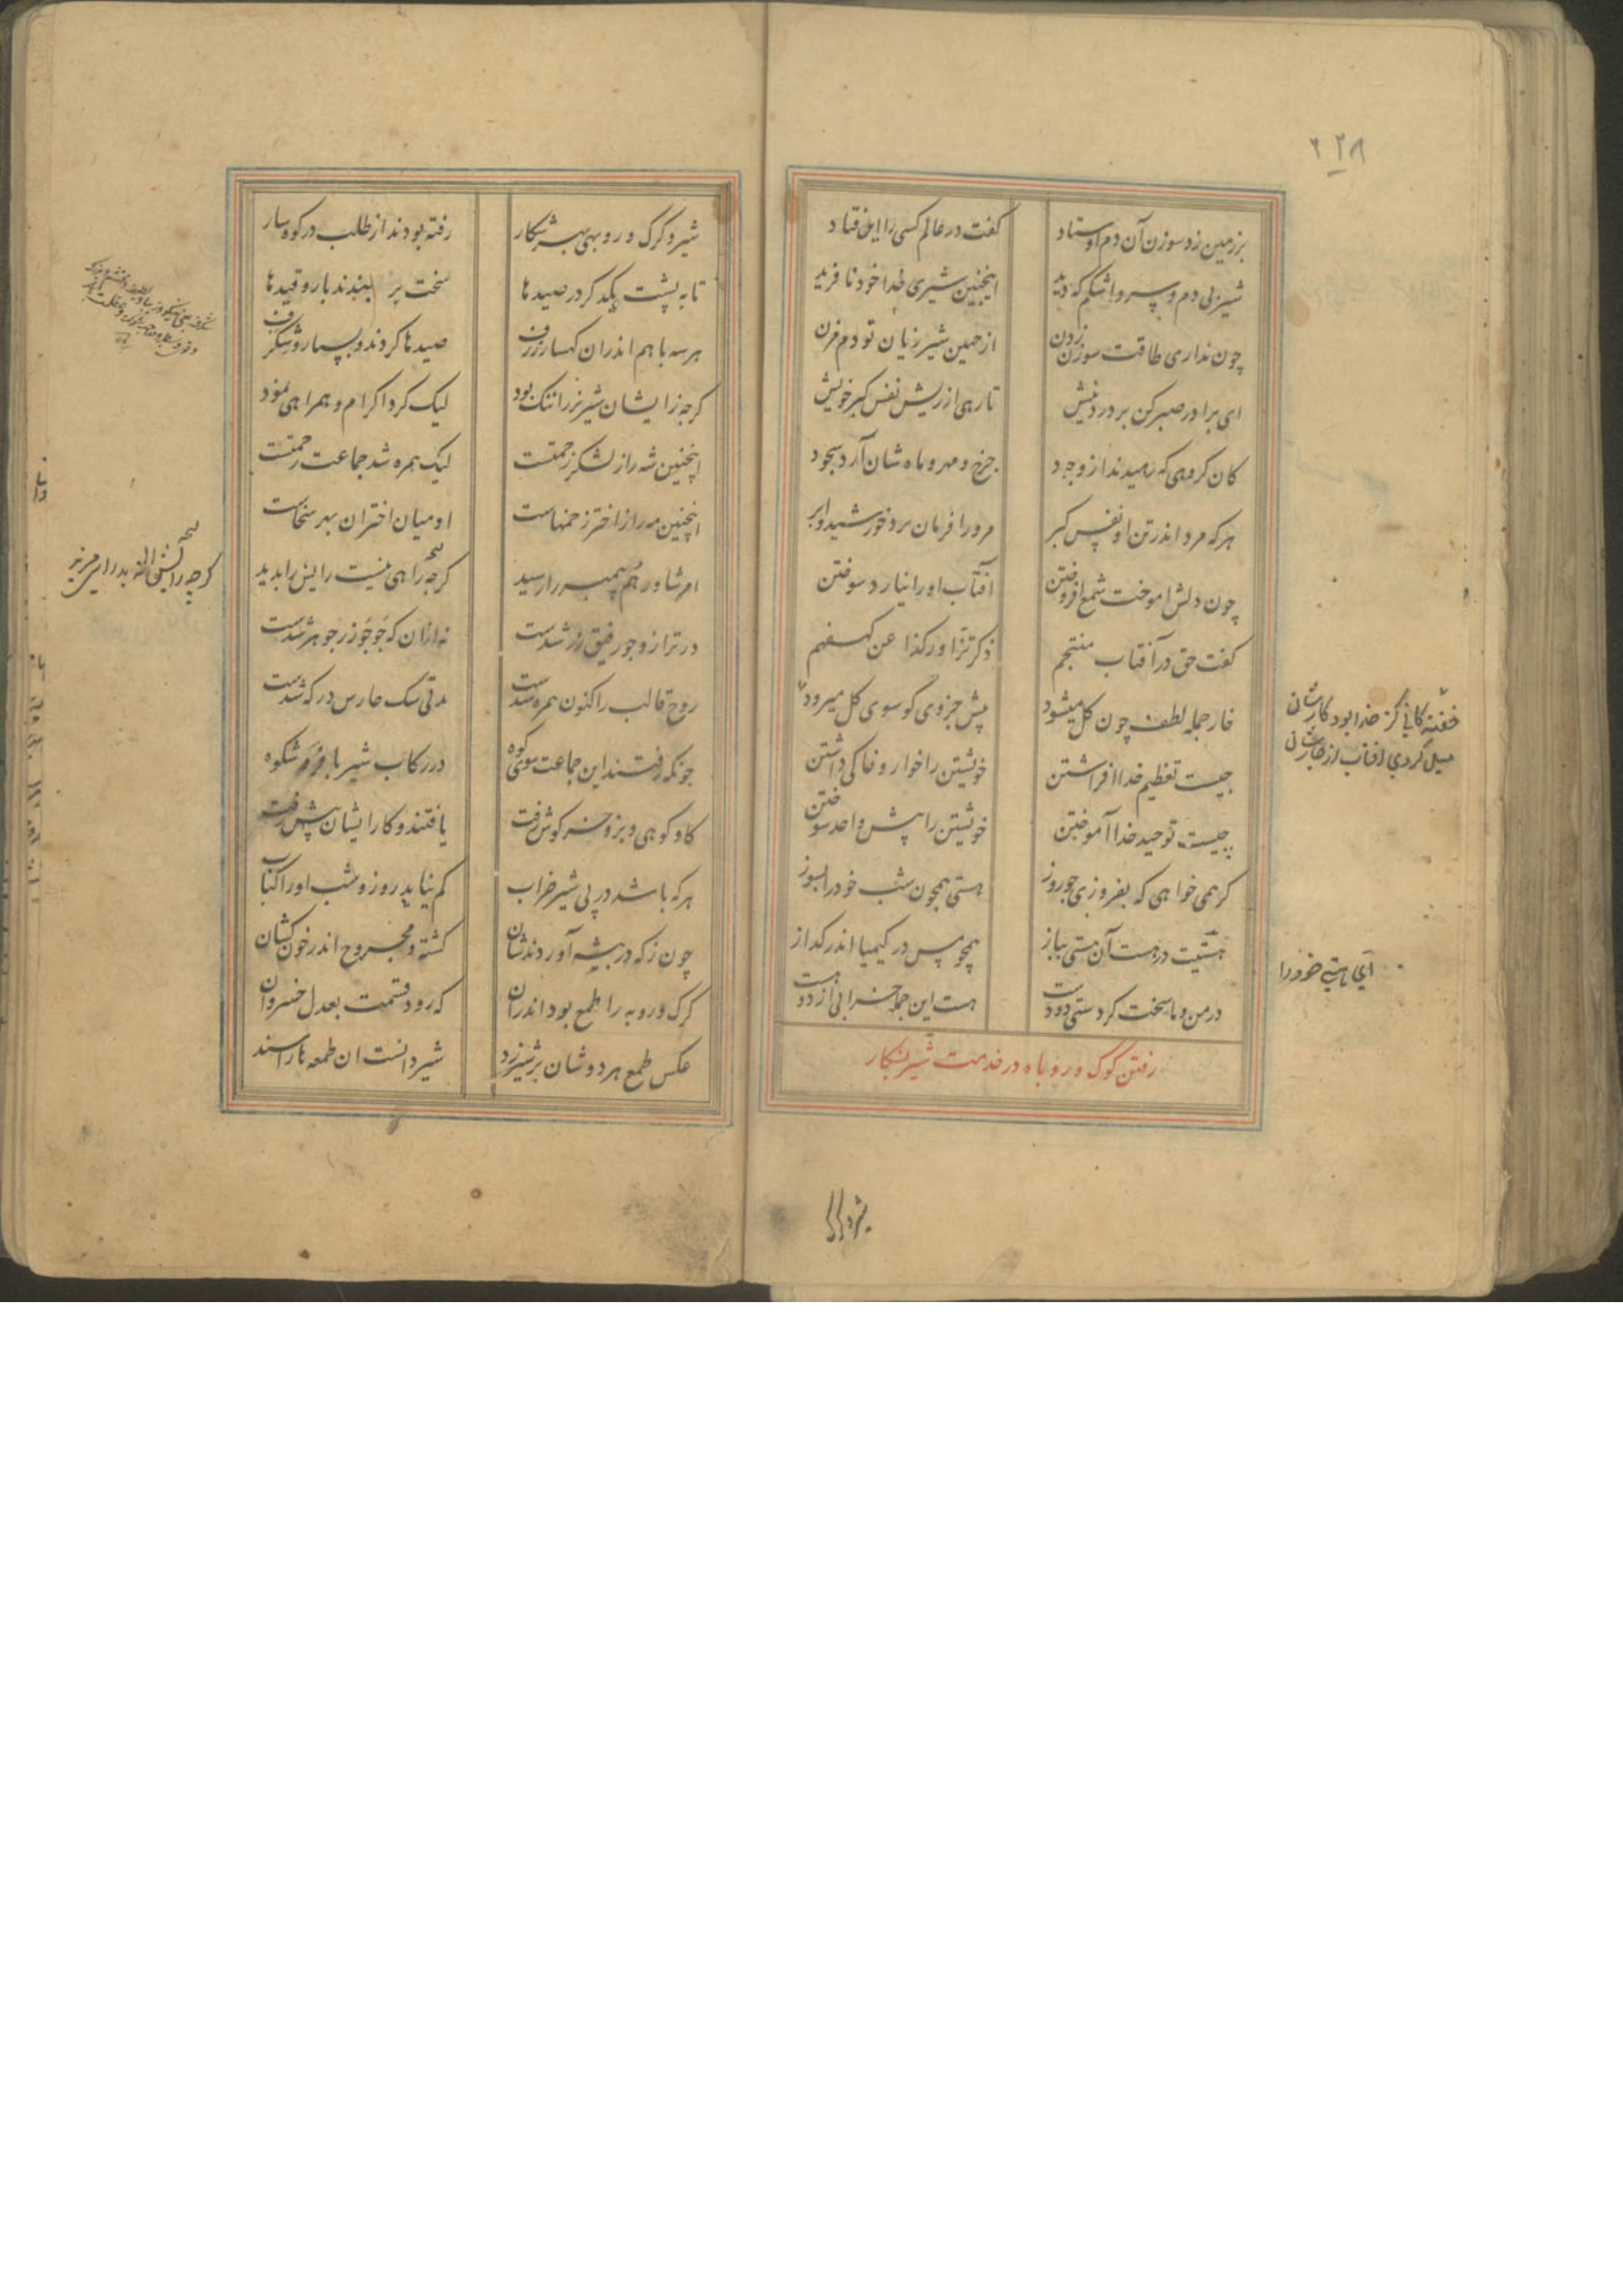 ۲۲۸
بر زمین زد سوزن آن دم اوستاد گفت در عالم کسی را این فتاد
شیر بی دم و سر و اشکم که دید اینچنین شیری خدا خود نافرید
چون نداری طاقت سوزن زدن از چنین شیر ژیان تو دم مزن
ای برادر صبر کن بر درد نیش تا رهی از ریش نفس کبر خویش
کان کروهی که رهیدند از وجود چرخ و مهر و ماه شان آرد سجود
هر که مرد اندر تن او نفس کبر مر ورا فرمان برد خورشید و ابر
چون دلش اموخت شمع افروختن آفتاب او را نیارد سوختن
کفت حق در آفتاب منتجم ذکر تزاور کذا عن کهفهم
خار جمله لطف چون کل میشود پیش جزوی کو سوی کل میرود
چیست تعظیم خدا افراشتن خویشتن را خوار و خاکی داشتن
چیست توحید خدا آموختن خویشتن را پیش واحد سوختن
کر همی خواهی که بفروزی چو روز هستی همچون شب خود را بسوز
هستیت در هست آن هستی نواز همچو مس در کیمیا اندر کداز
در من و ما سخت کردستی دو دست هست این جمله خرابی از دو هست
رفتن کرک و روباه در خدمت شیر بشکار
خفته کانی کز خدا بود کارشان
میل کردی افتاب از غارشان
ای هستی خود را
شیر و کرک و روبهی بهر شکار رفته بودند از طلب در کوهسار
تا به پشت یکدکر در صیدها سخت بر بندند بار و قیدها
هر سه با هم اندران کهسار ژرف صیدها کردند و بسیار و شکرف
کرچه زایشان شیر نر را ننک بود لیک کرد اکرام و همراهی نمود
اینچنین شه را ز لشکر زحمتست لیک همره شد جماعت رحمتست
اینچنین مه را ز اختر زحمتهاست او میان اختران بهر سخاست
امر شاورهم پیمبر را رسید کرچه راهی نیست رایش را بدید
در ترازو جو رفیق زر شدست نه ازان که جو چو زر جوهر شدست
روح قالب را کنون همره شدست مدتی سک حارس درکه شدست
چونکه رفتند این جماعت سوی کوه در رکاب شیر با فر و شکوه
کاو کوهی و بز و خرکوش زفت یافتند و کار ایشان پیش رفت
هر که باشد در پی شیر حراب کم نیاید روز و شب او را کباب
چون ز که در بیشه آوردندشان کشته و مجروح اندر خون کشان
کرک و روبه را طمع بود اندران که رود قسمت بعدل خسروان
عکس طمع هر دوشان بر شیر زد شیر دانست ان طمعها را سند